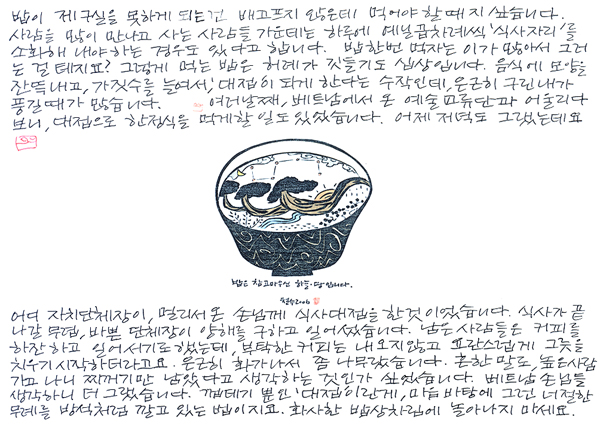 밥이 제구실을 못하게 되는건 배고프지 않은데 먹어야 할 때지 싶습니다.
사람을 많이 만나고 사는 사람들 가운데는 하루에 예닐곱차례씩 '식사자리'를
소화해 내야하는 경우도 있다고 합니다. 밥 한번 먹자는 이가 많아서 그러
는 걸 테지요? 그렇게 먹는 밥은 허례가 짓들기도 십상입니다. 음식에 모양을
잔뜩 내고, 가짓수를 늘여서 '대접'이 되게 한다는 수작인데, 은근히 구린내가
풍길 때가 많습니다. 여러날째, 베트남에서 온 예술교류단과 어울리다
보니, 대접으로 한정식을 먹게 할 일도 있었습니다. 어제 저녁도 그랬는데요
밥은 참고마우신 하늘·땅입니다.
철수2006
어디 자치단체장이, 멀리서 온 손님께 식사대접을 한것이었습니다. 식사가 끝
나갈 무렵, 바쁜 단체장이 양해를 구하고 일어섰습니다. 남은 사람들은 커피를
하잔하고 일어서기로 했는데, 부탁한 커피는 내오지 않고 요란스럽게 그릇을
치우기 시작하더라고요. 은근히 화가나서 쫌 나무랐습니다. 흔한 말로, 높은사람
가고 나니 찌꺼기만 남았다고 생각하는 것인가 싶었습니다. 베트남 손님들
생각하니 더 그랬습니다. 껍데기 뿐인 '대접'이란게, 마음 바탕에 그런 너절한
무례를 방석처럼 깔고 있는 법이지요. 화사한 밥상차림에 놀아나지 마세요.